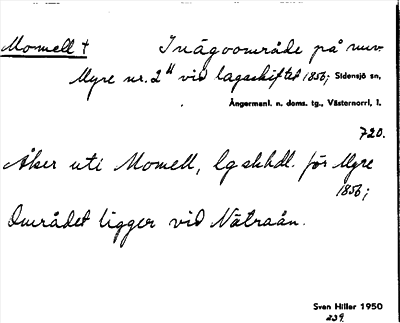 Momell † Inägoområde på nuv.
Myre nr. 2⁴ vid lagaskiftet 1856; Sidensjö sn,
Ångermanl. n. doms. tg., Västernorrl. l.
720.
Åker uti Momell, lgskhdl. för Myre
1856;
Området ligger vid Nätraån.
Sven Hiller 1950
239.